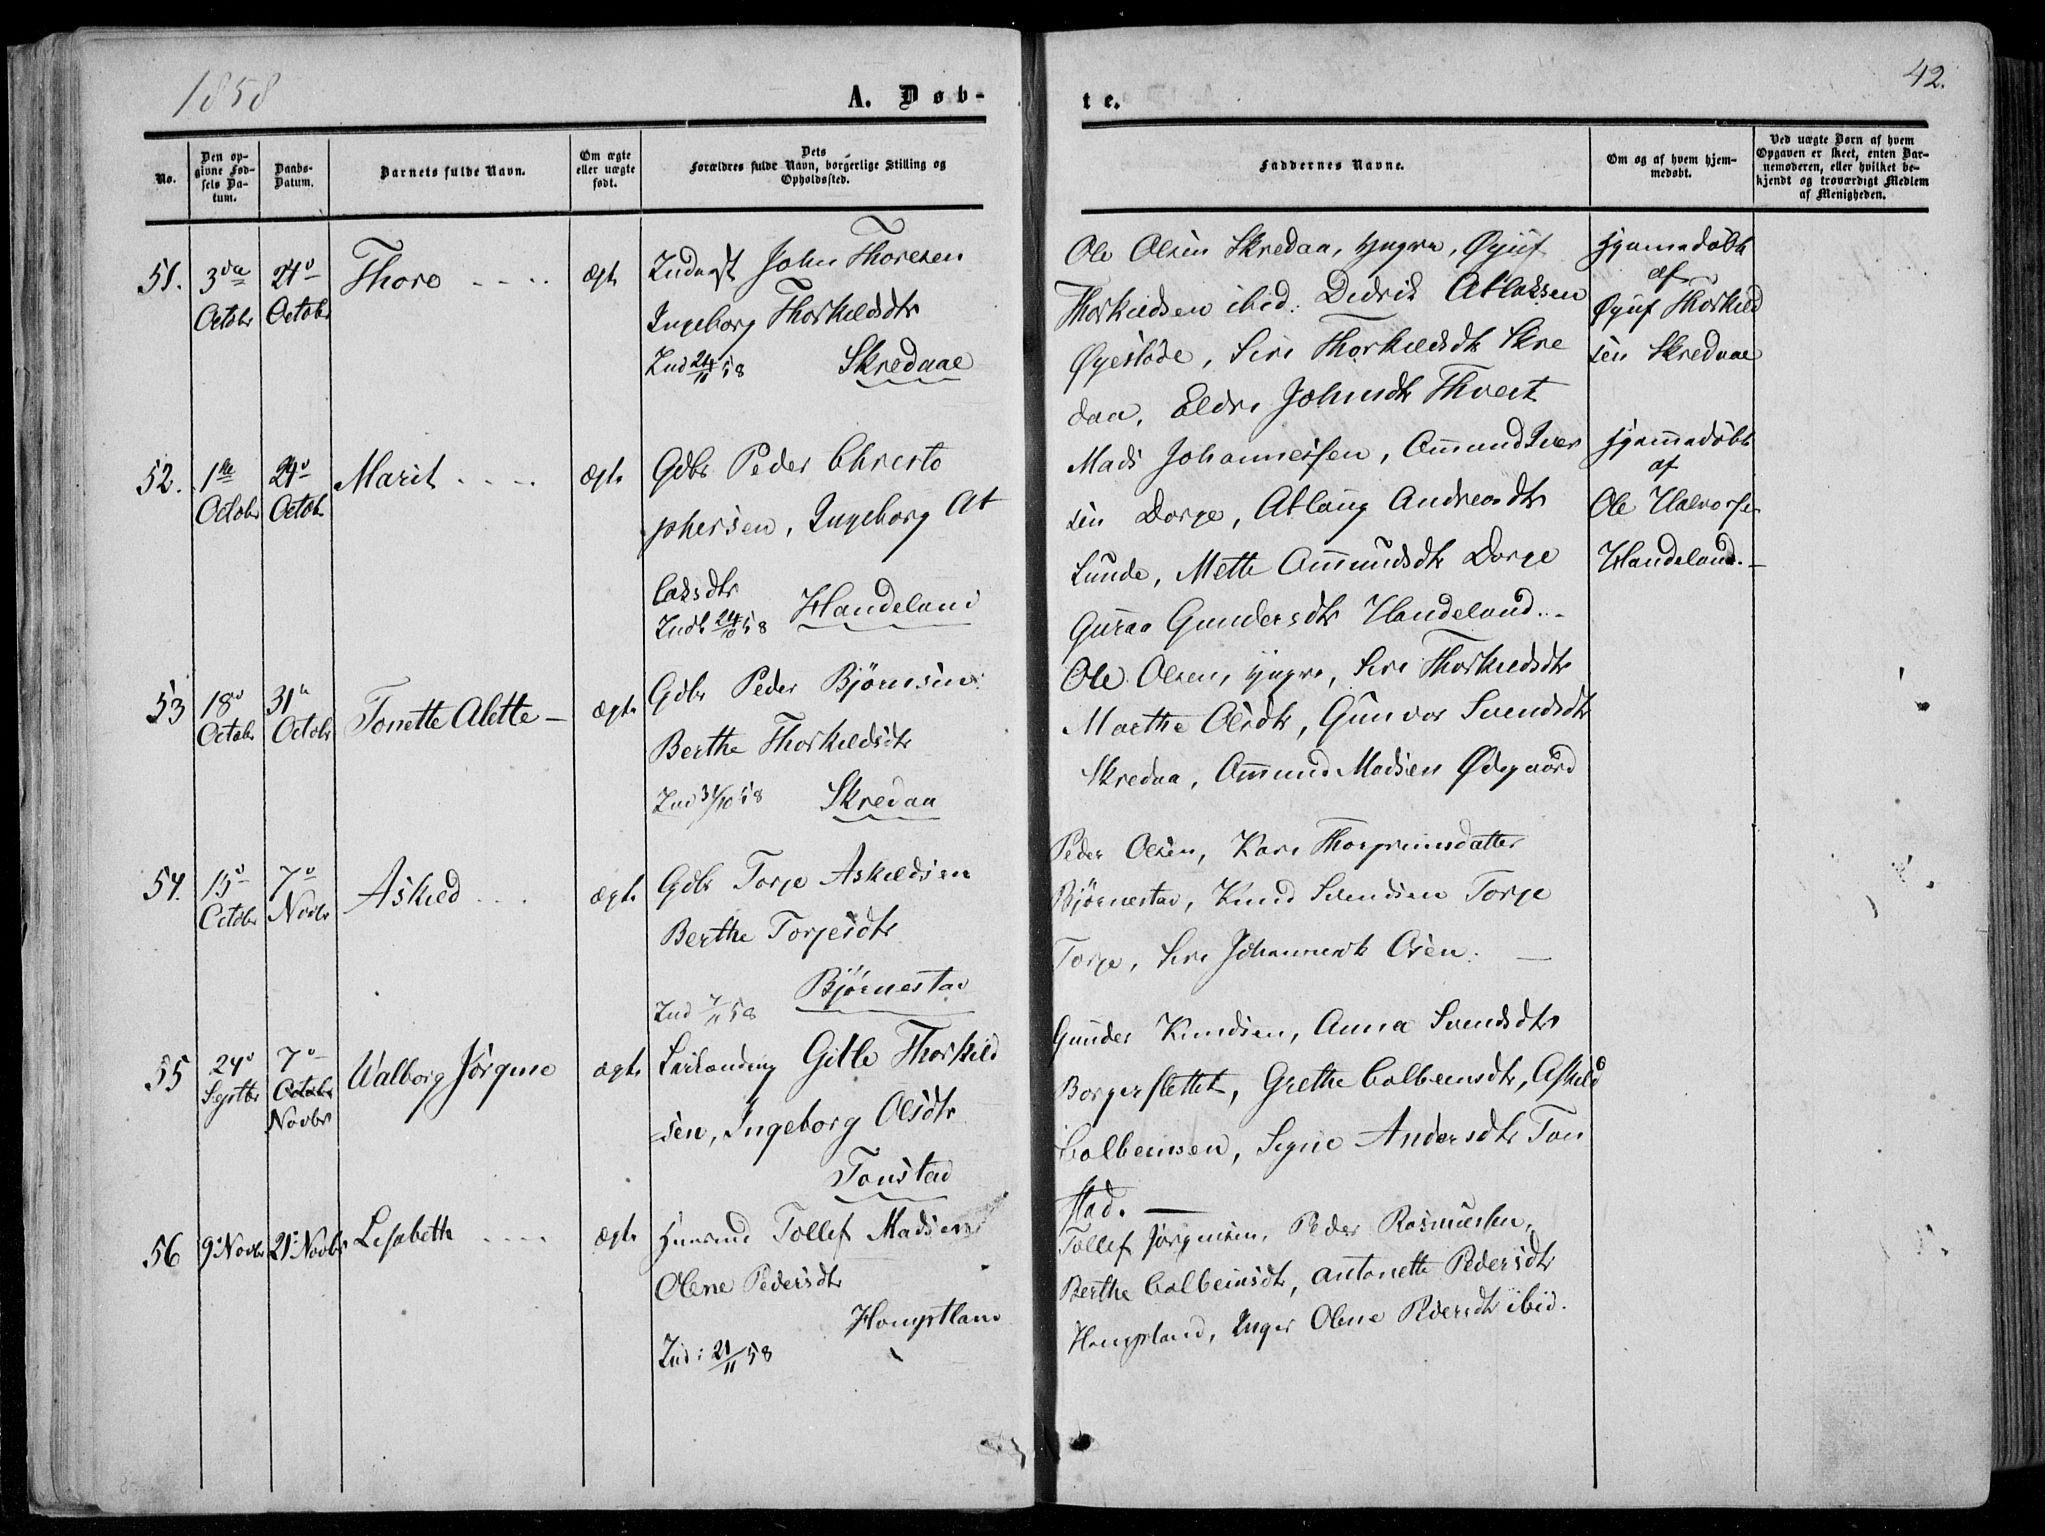 1858
A. Døb-
te.
42.
No.
Den op-
givne Fød-
sels Da-
tum.
Daabs-
Datum.
Barnets fulde Navn.
Om ægte
eller uægte
født.
Dets
Forældres fulde Navn, borgerlige Stilling og
Opholdssted.
Faddernes Navne.
Om og af hvem hjem-
medøbt.
Ved uægte Børn af hvem
Opgaven er skeet, enten Bar-
nemoderen, eller hvilket be-
kjendt og troværdigt Medlem
af Menigheden.
51. 3die
Octobr
24d
Octobr
Thore
ægte
John Thoresen
Ingeborg Thorkildsdtr
Ind 24/ 58 Skredaae
Ole Olsen Skredaa, yngre, Øjuf
Thorkildsen ibid. Didrik Atlaksen
Øyestøde, Siri Thorkildsdtr Skre
daa, Eldri Johnsdtr Thveit
Hjemmedøbt
af
Øjuf Thorkild
sen Skredaae
52. 1ste
Octobr
24d
Octobr
Marit
ægte
Gdbr Peder Christo
phersen, Ingeborg At
laksdtr
Indt 24/10 58 Handeland
Mads Johannessen, Ommund Iver
sen Dorge, Atlaug Andreasdtr
Lunde, Mette Ommundsdtr Dorge
Guraa Gundersdtr Handeland.
Hjemmedøbt
af
Ole Halvorsen
Handeland.
53 18d
Octobr
31te
Octobr
Tonette Alette
ægte
Gdbr Peder Bjørnsen
Berthe Thorkildsdtr
Ind 31/10 58 Skredaa
Ole Olsen, yngre, Siri Thorkildsdtr
Marthe Olsdtr, Gunvor Svendsdtr
Skredaa, Ommund Madsen Ødegaard
54. 15d
Octobr
7d
Novbr
Askild
ægte
Gdbr Torje Askildsen
Berthe Torjesdtr
Ind 7/11 58 Bjørnestad
Peder Olsen, Kari Thorgrimsdatter
Bjørnestad, Knud Svendsen Torje
Torje, Siri Johannesdtr Osen.
55 24d
Septbr
7d
Octobr
Novbr
Walborg Jørgine
ægte
Leilænding Gitle Thorkild
sen, Ingeborg Olsdtr
Tonstad
Gunder Knudsen, Anna Svendsdtr
Borgerslettet, Grethe Colbeinsdtr, Askild
Colbeinsen, Signe Andersdtr Ton
stad.
56 9d Novbr 21d Novbr Lisabeth
ægte
Husmd Tollef Madsen
Olene Pedersdtr
Homptland
Ind: 21/11 58
Tollef Jørgensen, Peder Rasmussen,
Berthe Colbeinsdtr, Antonette Pedersdtr
Hompland, Inger Olene Pedersdtr ibid.